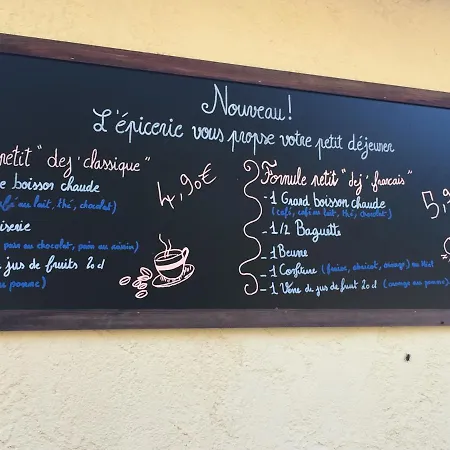 Nouveau!
L'épicerie vous propse votre petit déjeuner
petit "dej' classique"
boisson chaude
café au lait, thé, chocolat)
4,90€
pain au chocolat, pain au raisin)
jus de fruits 20 cl
ou pomme)
Formule petit "dej' français"
- 1 Grand boisson chaude
(café, café au lait, thé, chocolat)
- 1/2 Baguette
- 1 Beurre
- 1 Confiture (fraise, abricot, orange) ou Miel
- 1 Verre de jus de fruit 20 cl (orange ou pomme)
5,9